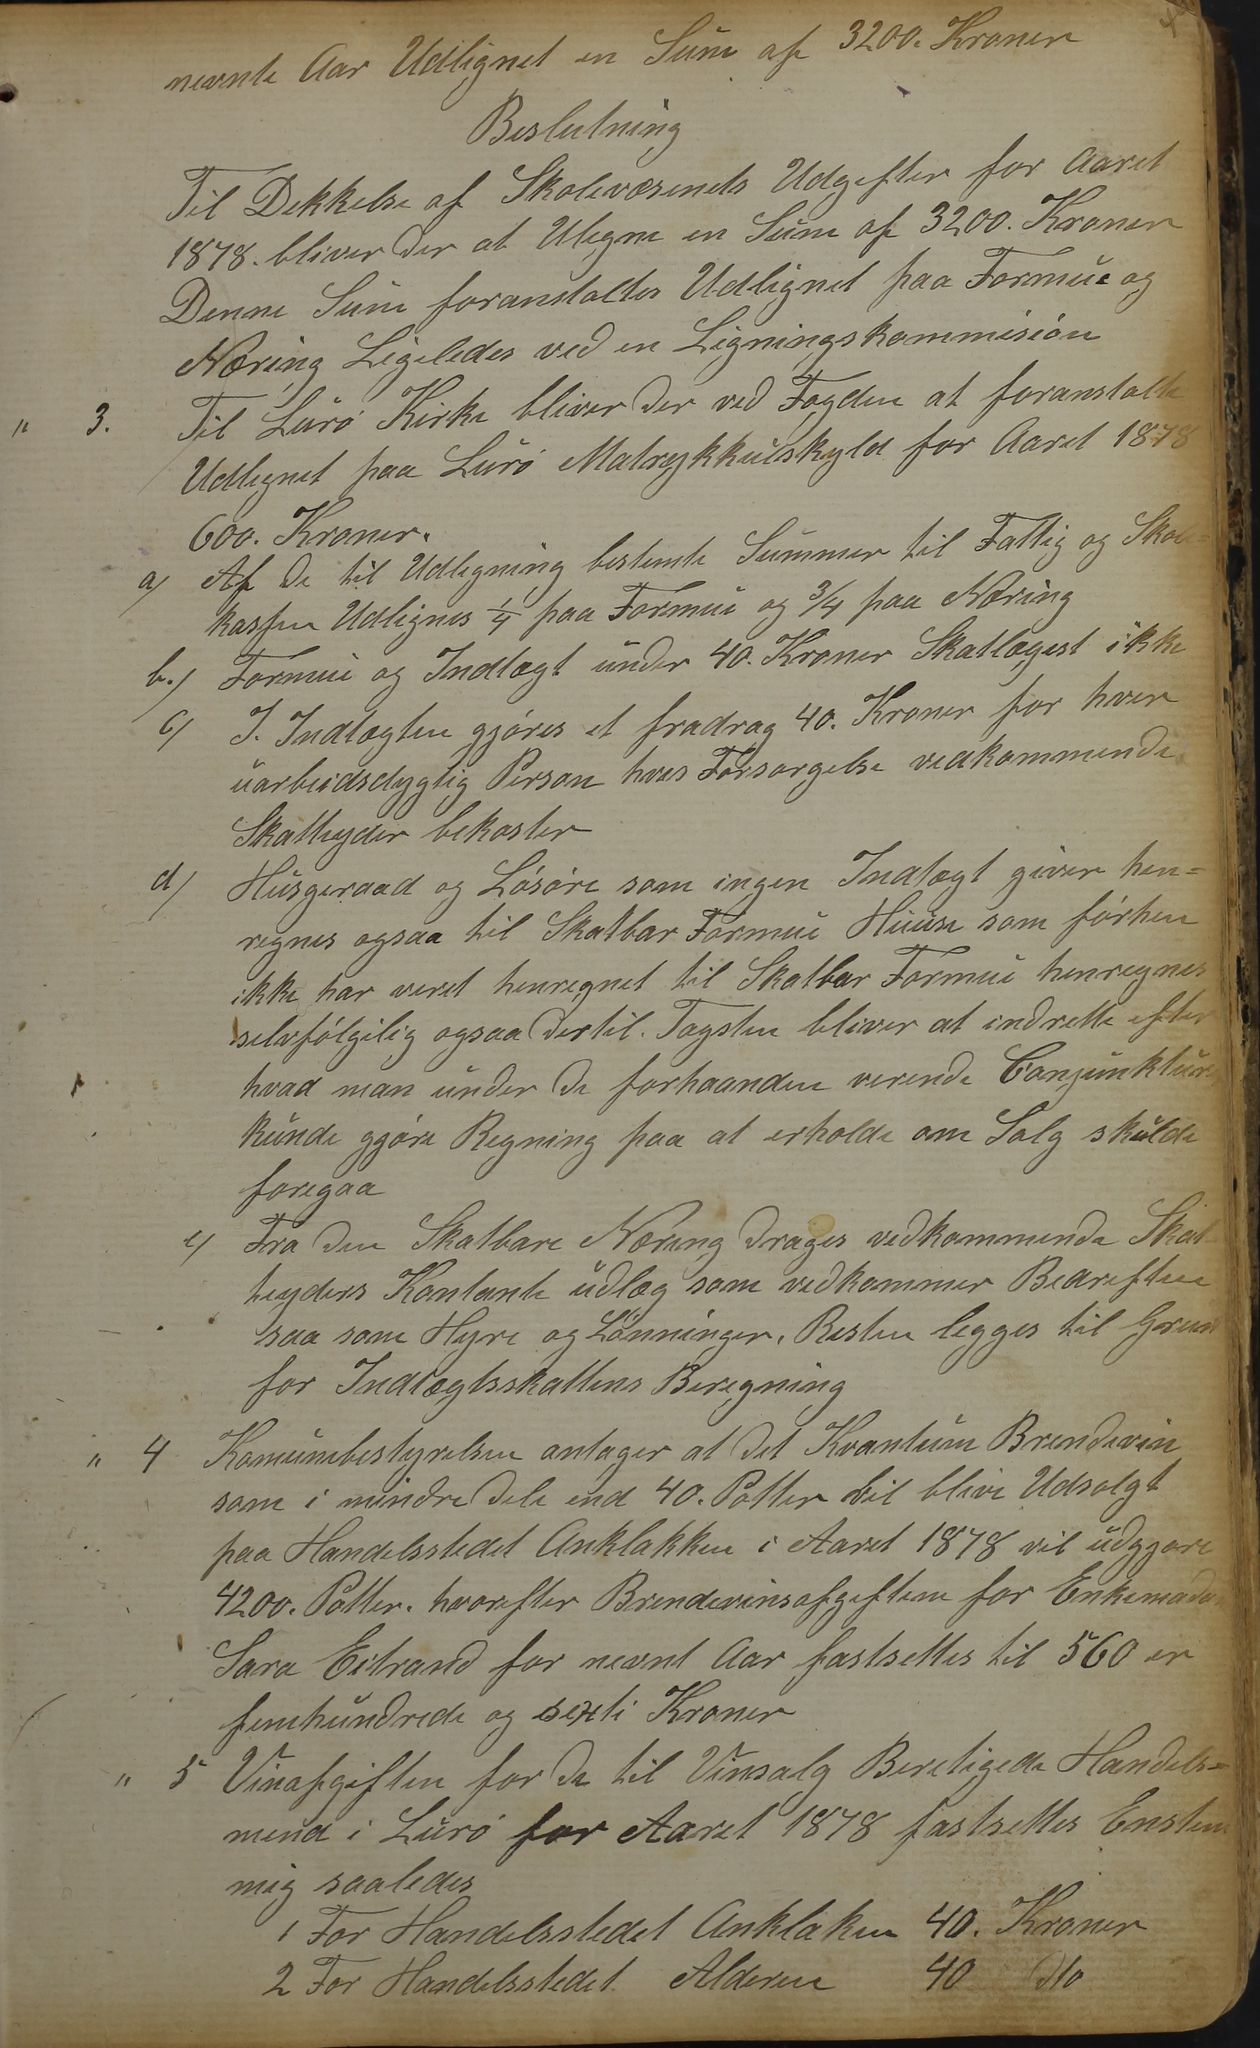 nevnte Aar Udlignet en Sum af 3200. Kroner
Beslutning
Til Dekkelse af Skolevæsenets Udgifter for Aaret
1878. bliver der at Uligne en Sum af 3200. Kroner
Denne Sum foranstaltes Udlignet paa Formue og
Næring Ligeledes ved en Ligningskommision
" 3. Til Lurø Kirke bliver der ved Fogden at foranstalte
Udlignet paa Lurø Matrykkulskyld for Aaret 1878
600. Kroner.
a) Af de til Udligning bestemte Summer til Fattig og Skole=
kassen Udlignes 1/4 paa Formue og 3/4 paa Næring
b.) Formue og Indtægt under 40. Kroner Skatlægest ikke
c) I. Indtægten gjøres et fradrag 40. Kroner for hver
uarbeidsdygtig Person hves Forsørgelse vedkommende
Skatteyder bekoster
d) Husgeraad og Løsøre som ingen Indtægt giver hen=
regnes ogsaa til Skatbar Formue Huuse som førhen
ikke har veret henregnet til Skatbar Formue henregnes
selvfølgilig ogsaa dertil. Tagsten bliver at indrette efter
hvad man under de forhaanden verende Conjunktur
kunde gjøre Regning paa at erholde om Salg skulde
foregaa
e) Fra den Skatbare Næring drages vedkommende Skat
teyders Kontante udlæg som vedkommer Bedriften
saa som Hyre og Lønninger, Resten legges til Grund
for Indtægtsskattens Beregning
" 4 Komunebestyrelsen antager at det Kvantum Brendevin
som i mindre Dele end 40. Potter vil blive Udsolgt
paa Handelsstedet Anklakken i Aaret 1878 vil udgjøre
4200. Potter. hvorefter Brendevinsafgiften for Enkemadam
Sara Eitrand for nevnt Aar fastsettes til 560 er
femhundrede og sexti Kroner
" 5 Vinafgiften for de til Vinsalg Beretigede Handels=
mend i Lurø for Aaret 1878 fastsettes Enstem
mig saaledes
1 For Handelsstedet Anklaken 40. Kroner
2 For Handelsstedet Alderen 40 dto